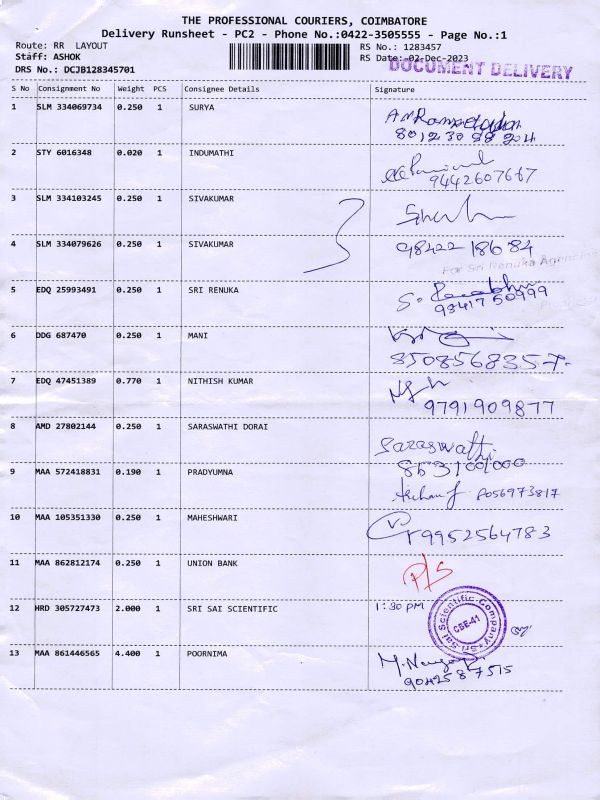 THE PROFESSIONAL COURIERS, COIMBATORE
Delivery Runsheet - PC2 - Phone No.:0422-3505555 - Page No.:1
Route: RR LAYOUT
RS No.: 1283457
Staff: ASHOK
RS Date: 02-Dec-2023
DOCUMENT DELIVERY
DRS No.: DCJB128345701
S No Consignment No Weight PCS Consignee Details Signature
1 SLM 334069734 0.250 1 SURYA
2 STY 6016348 0.020 1 INDUMATHI
9442607667
3 SLM 334103245 0.250 1 SIVAKUMAR
4 SLM 334079626 0.250 1 SIVAKUMAR
98422 18684
For Sri Renuka Agencies
5 EDQ 25993491 0.250 1 SRI RENUKA
9341750999
6 DDG 687470 0.250 1 MANI
8508568357
7 EDQ 47451389 0.770 1 NITHISH KUMAR
9791909877
8 AMD 27802144 0.250 1 SARASWATHI DORAI
Saraswathi
9 MAA 572418831 0.190 1 PRADYUMNA
10 MAA 105351330 0.250 1 MAHESHWARI
9952564783
11 MAA 862812174 0.250 1 UNION BANK
P/S
12 HRD 305727473 2.000 1 SRI SAI SCIENTIFIC 1:30 PM
Sri Sai Scientific Company
CBE-41
13 MAA 861446565 4.400 1 POORNIMA
9042587515